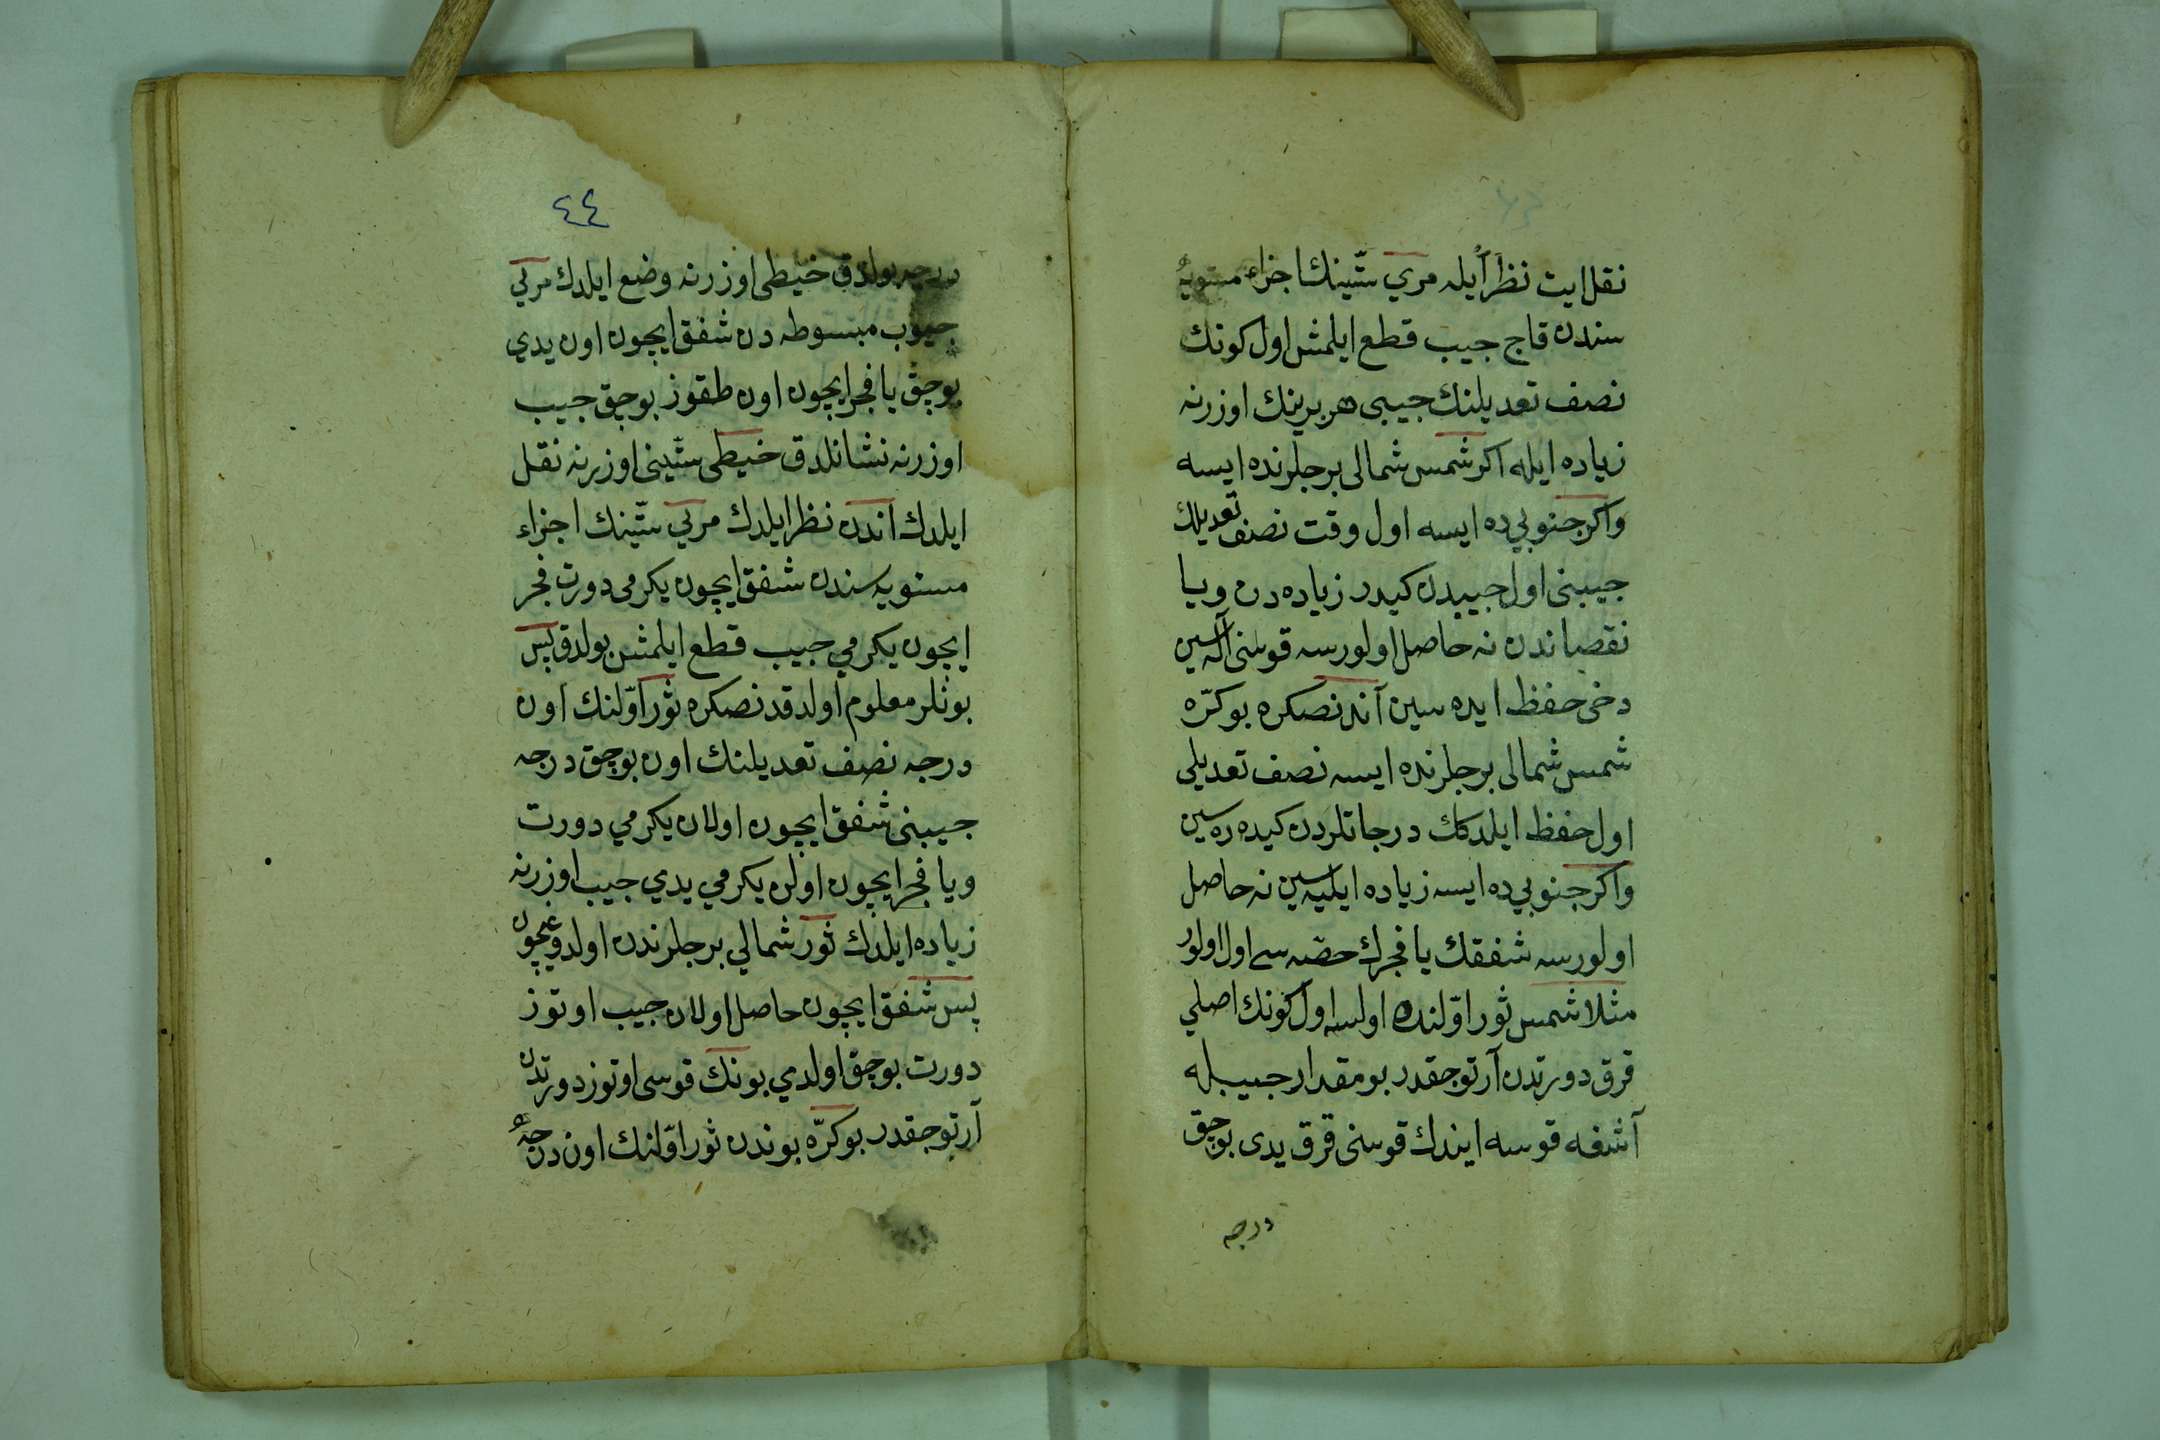 نقل ايت نظر ايله مري ستينك اجزاء مستويه
سندن قاچ جيب قطع ايلمش اول كونك
نصف تعديلنك جيبى هر برينك اوزرنه
زياده ايله اكر شمس شمالى برجلرنده ايسه
واكر جنوبي ده ايسه اول وقت نصف تعديلك
جيبنى اول جيبدن كيدر زياده دن ويا
نقصاندن نه حاصل اولورسه قوسنى آله سين
دخى حفظ ايده سين آندنصكره بو كرّه
شمس شمالى برجلرنده ايسه نصف تعديلى
اول حفظ ايلدكك درجاتلردن كيده ره سين
واكر جنوبي ده ايسه زياده ايليه سين نه حاصل
اولورسه شفقك يا فجرك حصّه سى اول اولور
مثلا شمس ثور اوّلنده اولسه اول كونك اصلي
قرق دورتدن آرتوجقدر بو مقدار جيبله
آشفه قوسه ايندك قوسنى قرق يدى بوچق
درجه
٤٤
درجه بولدق خيطى اوزرنه وضع ايلدك مريى
جيوب مبسوطه دن شفق ايچون اون يدي
بوچق يا فجر ايچون اون طقوز بوچق جيب
اوزرنه نشانلدق خيطى ستّينى اوزرنه نقل
ايلدك اندن نظر ايلدك مريي ستّينك اجزاء
مستويه سندن شفق ايچون يكرمى دورت فجر
ايچون يكرمي جيب قطع ايلمش بولدق پس
بونلر معلوم اولدقدنصكره ثور اوّلنك اون
درجه نصف تعديلنك اون بوچق درجه
جيبنى شفق ايچون اولان يكرمي دورت
ويا فجر ايچون اولن يكرمي يدي جيب اوزرنه
زياده ايلدك ثور شمالي برجلرندن اولدوغيچون
پس شفق ايچون حاصل اولان جيب اوتوز
دورت بوچق اولدي بونك قوسى اوتوز دورتدن
آرتوجقدر بو كرّه بوندن ثور اوّلنك اون درجه